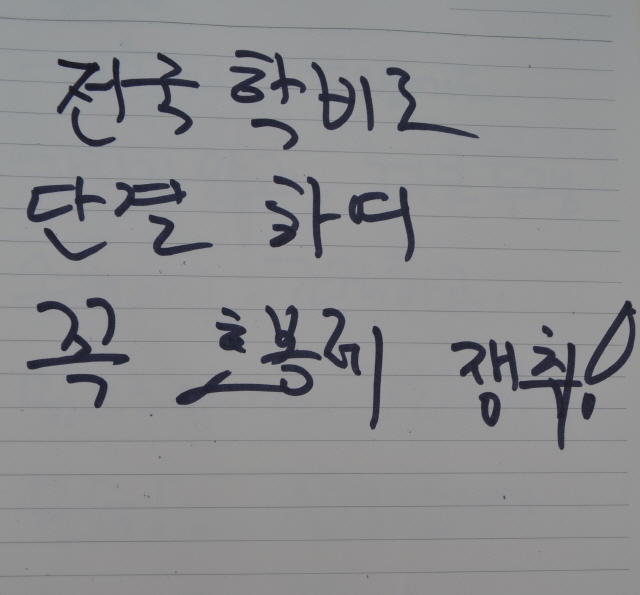 전국 학비로
단결 하여
꼭 호봉제 쟁취!